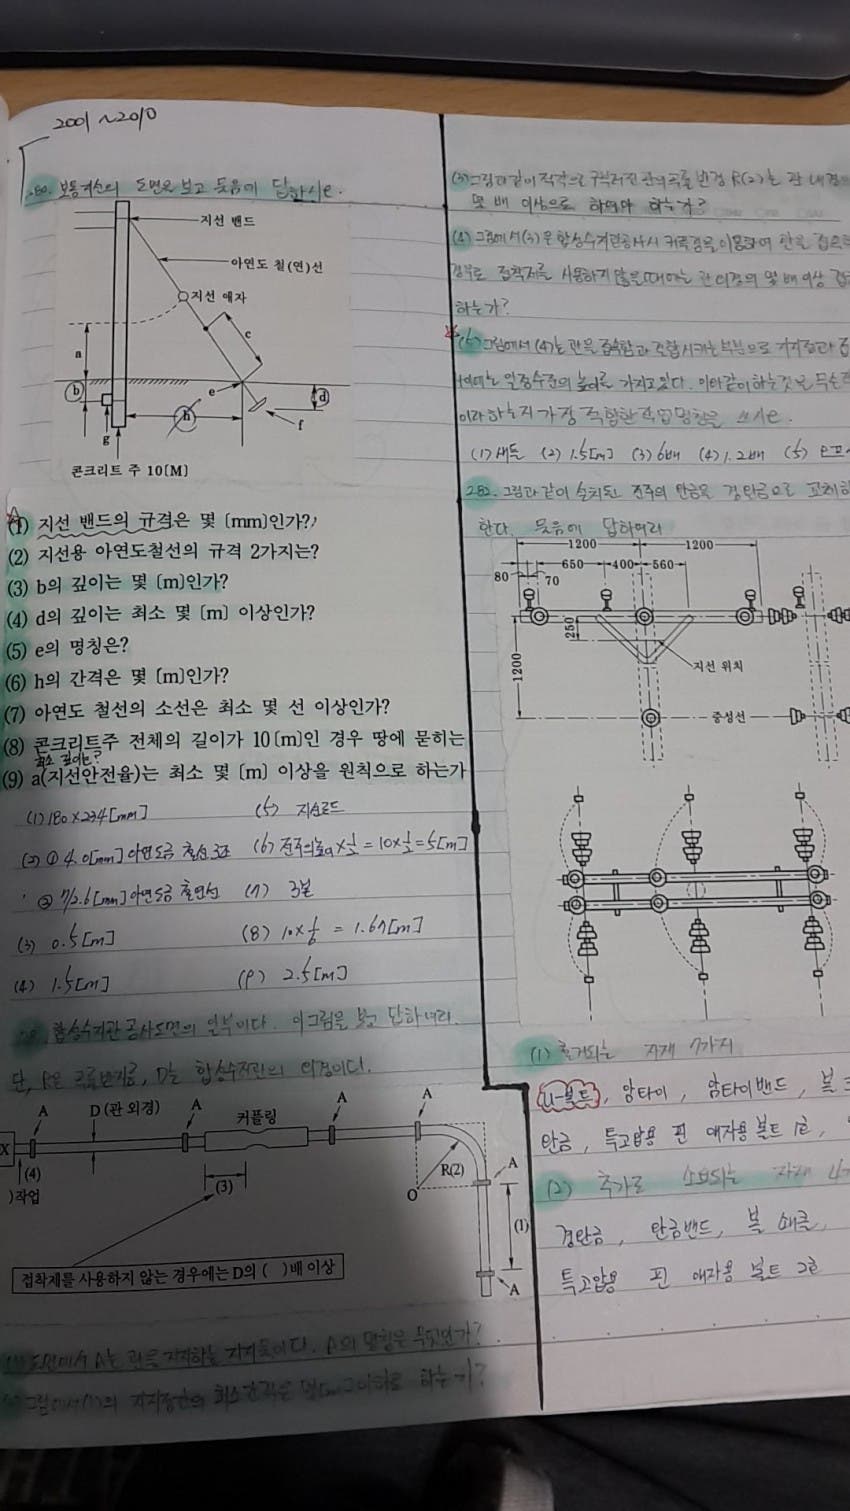 2001 ~2010
280. 보통지선의 도면을 보고 물음에 답하시오.
지선 밴드
아연도 철(연)선
지선 애자
c
a
b
e
d
g
h
f
콘크리트 주 10[M]
(1) 지선 밴드의 규격은 몇 [mm]인가?
(2) 지선용 아연도철선의 규격 2가지는?
(3) b의 깊이는 몇 [m]인가?
(4) d의 깊이는 최소 몇 [m] 이상인가?
(5) e의 명칭은?
(6) h의 간격은 몇 [m]인가?
(7) 아연도 철선의 소선은 최소 몇 선 이상인가?
(8) 콘크리트주 전체의 길이가 10[m]인 경우 땅에 묻히는
최소 깊이는?
(9) a(지선안전율)는 최소 몇 [m] 이상을 원칙으로 하는가
(1) 180×234[mm]
(5) 지선로드
(2) ① 4.0[mm] 아연도금 철선 3조
(6) 전주의높이×1/2 = 10×1/2 = 5[m]
② 7/2.6[mm] 아연도금 철연선
(7) 3본
(3) 0.5[m]
(8) 10×1/6 = 1.67[m]
(4) 1.5[m]
(9) 2.5[m]
합성수지관 공사도면의 일부이다. 이그림을 보고 답하여라.
단, R은 곡률반지름, D는 합성수지관의 외경이다.
A
D(관 외경)
A
커플링
A
A
X
(4)
)작업
(3)
R(2)
O
A
(1)
A
접착제를 사용하지 않는 경우에는 D의 ( )배 이상
(1) 도면에서 A는 관을 지지하는 지지물이다. A의 명칭은 무엇인가?
그림에서 (1)의 지지점간의 최소간격은 몇[m] 이하로 하는가?
(3) 그림과 같이 직각으로 구부러진 관의 곡률 반경 R(2)는 관 내경의
몇 배 이상으로 하여야 하는가?
(4) 그림에서 (3)은 합성수지관공사시 커플링을 이용하여 관을 접속
경우로 접착제를 사용하지 않을때에는 관 외경의 몇 배 이상
하는가?
(5) 그림에서 (4)는 관을 접속함과 조합시키는 부분으로 지지점과
일정수준의 높이를 가지고 있다. 이와같이하는것을 무슨작
이라하는지 가장 적합한 작업 명칭을 쓰시오.
(1) 새들 (2) 1.5[m] (3) 6배 (4) 1.2배 (5) 오프
282. 그림과 같이 설치된 전주의 완금을 경완금으로 교체하
한다. 물음에 답하여라
1200
1200
650
400
560
80
70
250
1200
지선 위치
중성선
(1) 철거되는 자재 7가지
U-볼트, 암타이, 암타이밴드, 볼
완금, 특고압용 핀 애자용 볼트 1호,
(2) 추가로 소요되는 자재 4가
경완금, 완금밴드, 볼 쇄클,
특고압용 핀 애자용 볼트 2호